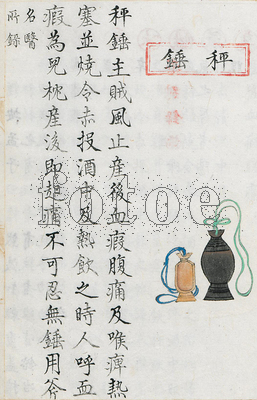 秤錘
秤錘主賊風止産後血瘕腹痛及喉痺熱
塞並燒令赤投酒中及熱飲之時人呼血
瘕為兒枕産後即起痛不可忍無錘用斧
名醫
所錄
fotoe